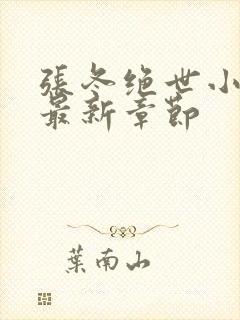 張冬绝世小
最新章節
葉南山